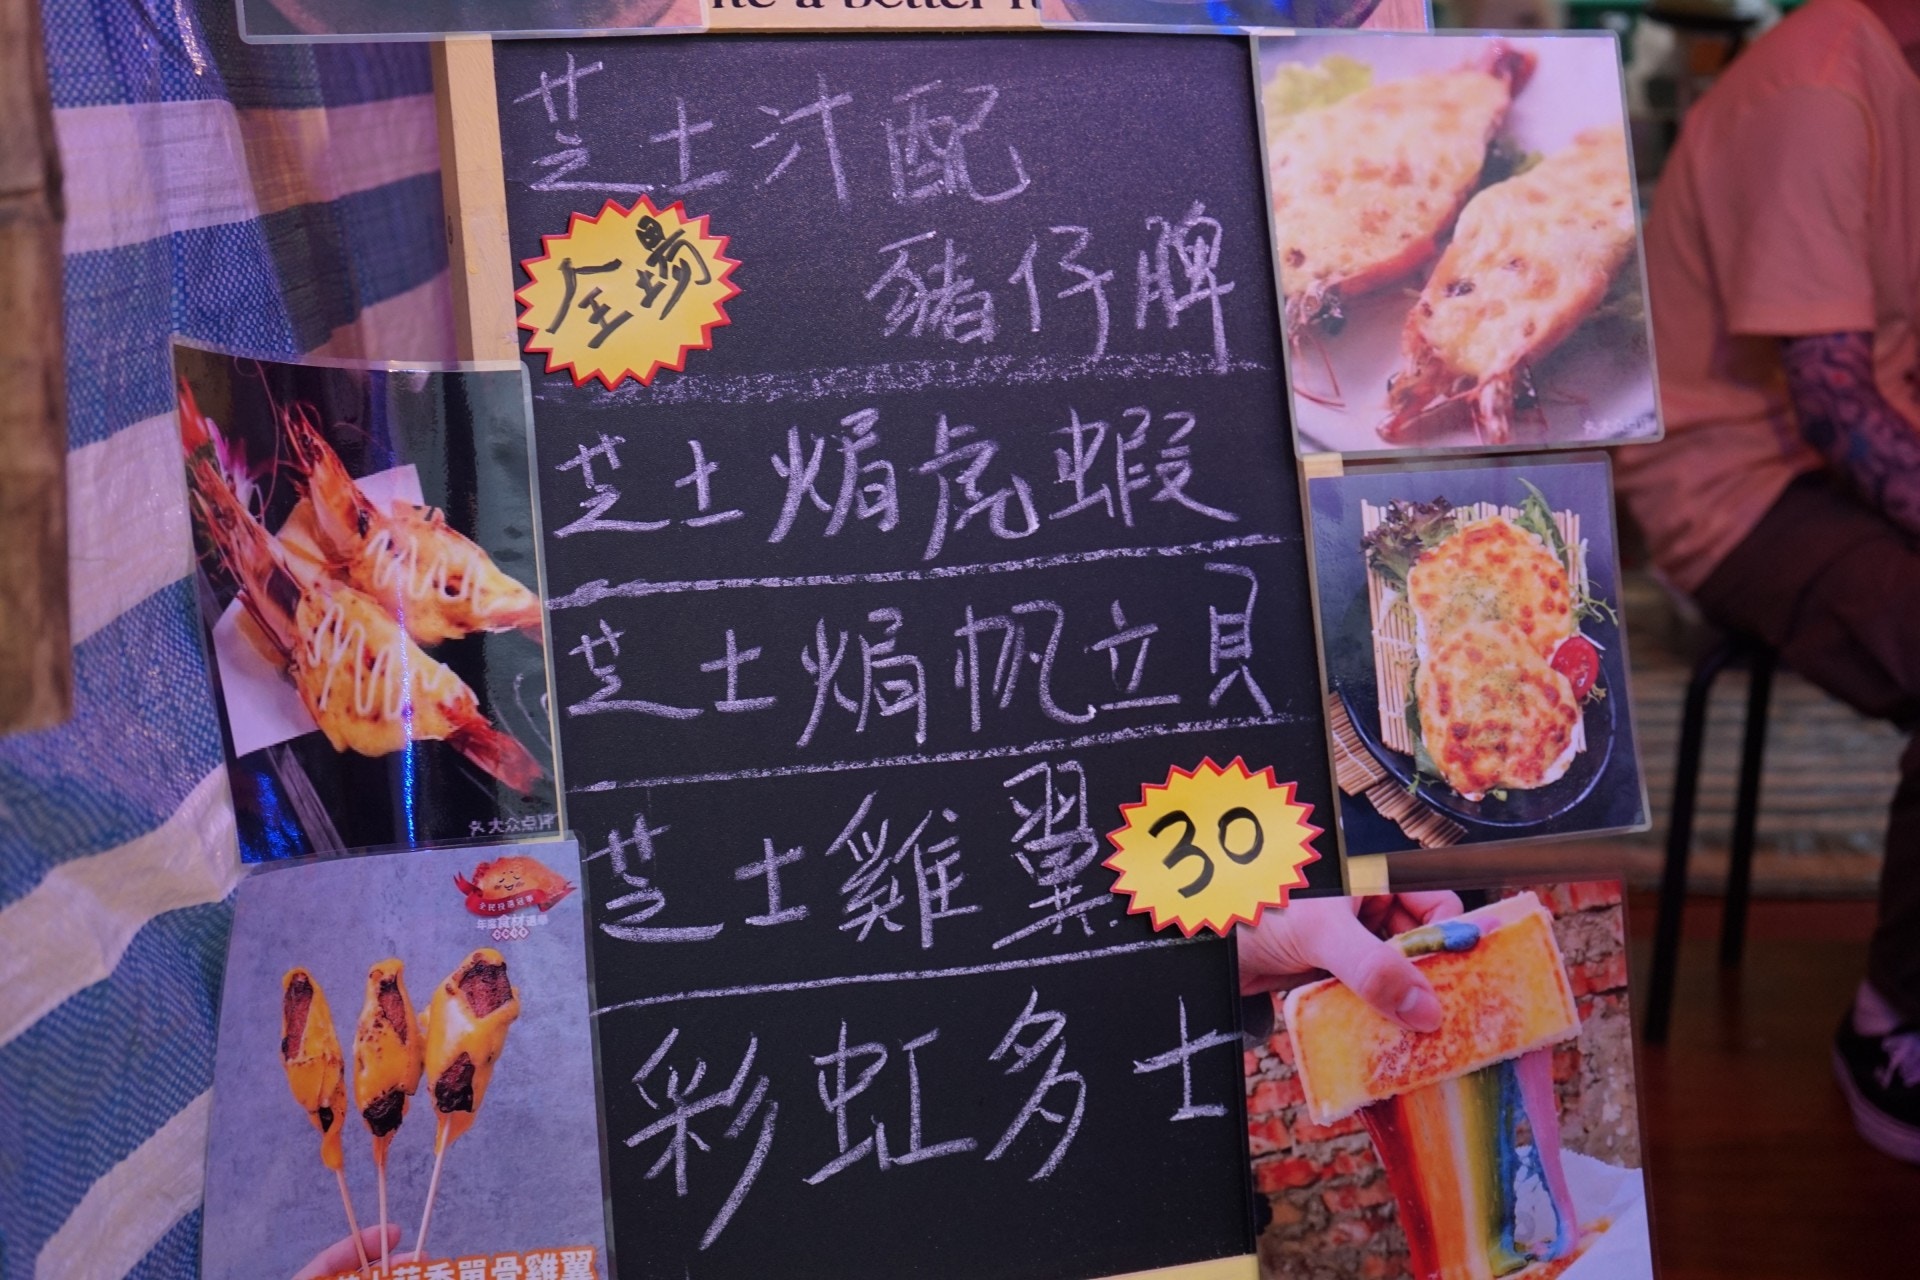 a better
芝士汁配
全場
豬仔髀
芝士焗虎蝦
芝士焗帆立貝
芝士雞翼
30
彩虹多士
大众点评
年度食材選舉
單骨雞翼